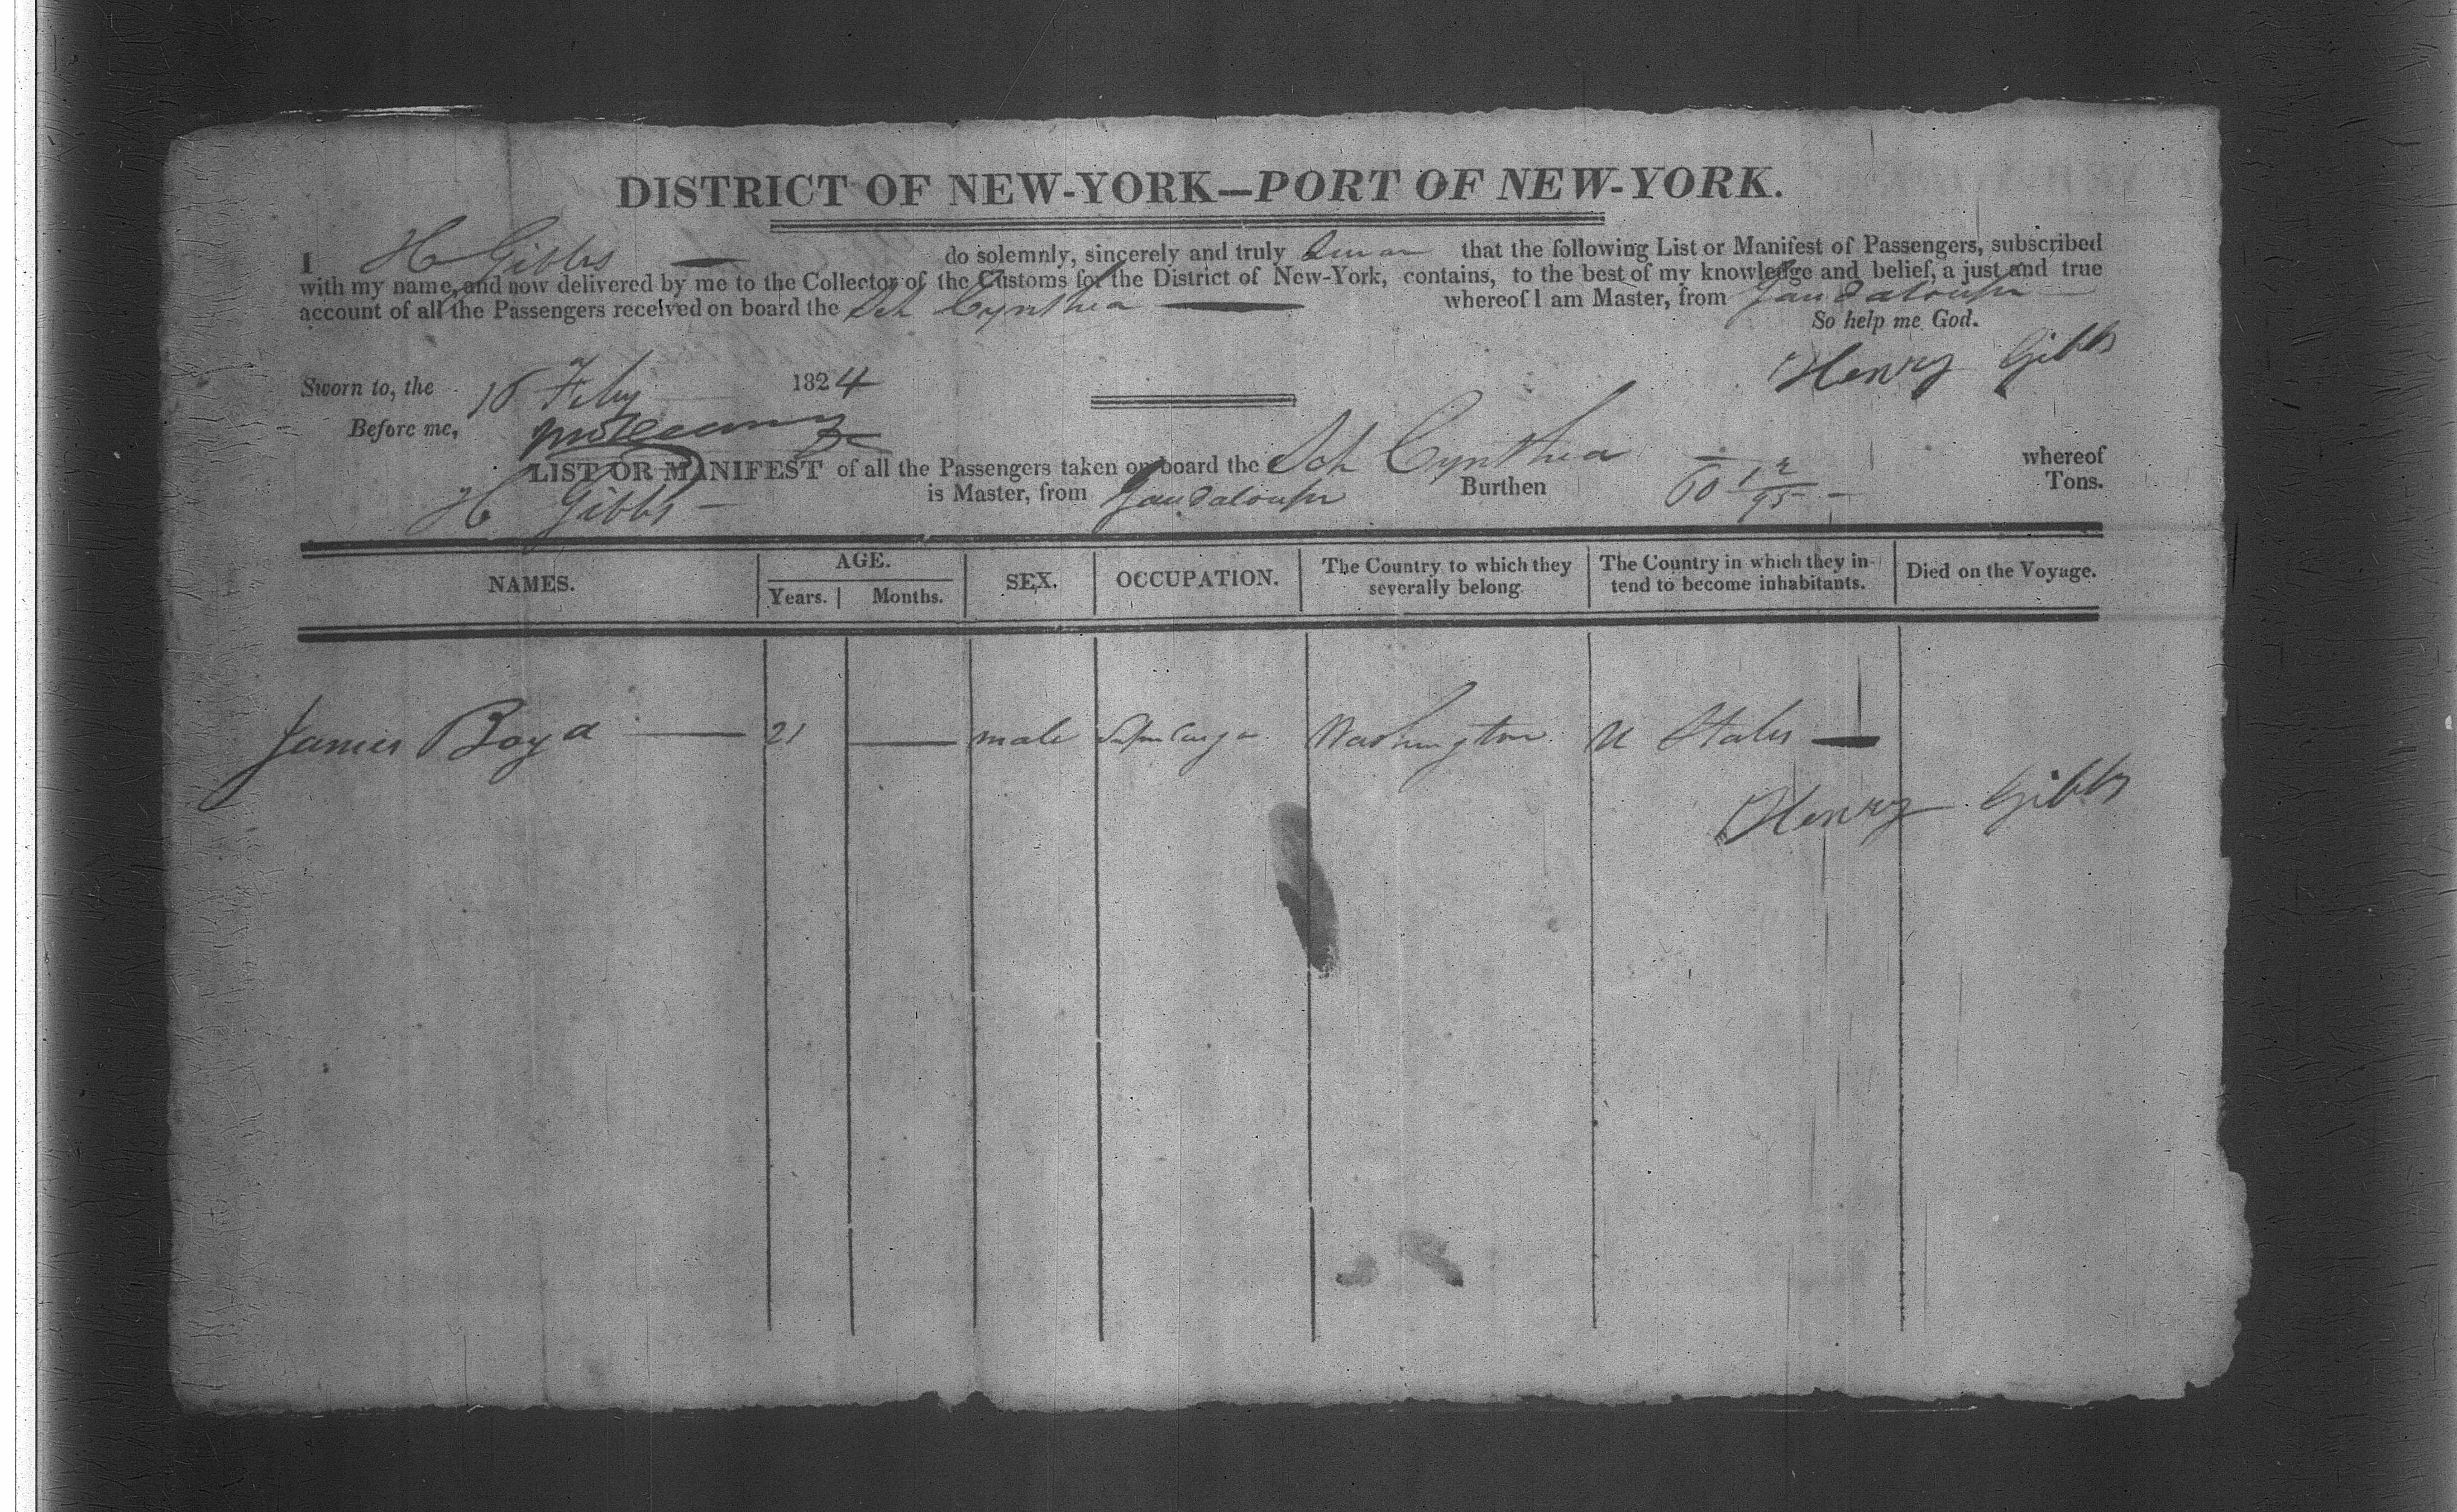 DISTRICT OF NEW-YORK—PORT OF NEW-YORK.
I H Gibbs — do solemnly, sincerely and truly Swear that the following List or Manifest of Passengers, subscribed
with my name, and now delivered by me to the Collector of the Customs for the District of New-York, contains, to the best of my knowledge and belief, a just and true
account of all the Passengers received on board the Sch Cynthea — whereof I am Master, from Gaudaloupe
So help me God.
Henry Gibbs
Sworn to, the 16 Feby 1824
Before me,
LIST OR MANIFEST of all the Passengers taken on board the Sch Cynthea whereof
H Gibbs — is Master, from Gaudaloupe Burthen 60 12/95 — Tons.
NAMES. AGE. Years. Months. SEX. OCCUPATION. The Country to which they severally belong. The Country in which they intend to become inhabitants. Died on the Voyage.
James Boyd — 21 — male Supercargo Washington U States —
Henry Gibbs